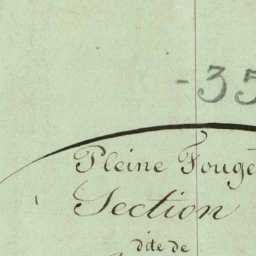 -35
Pleine Fougè
Section
dite de